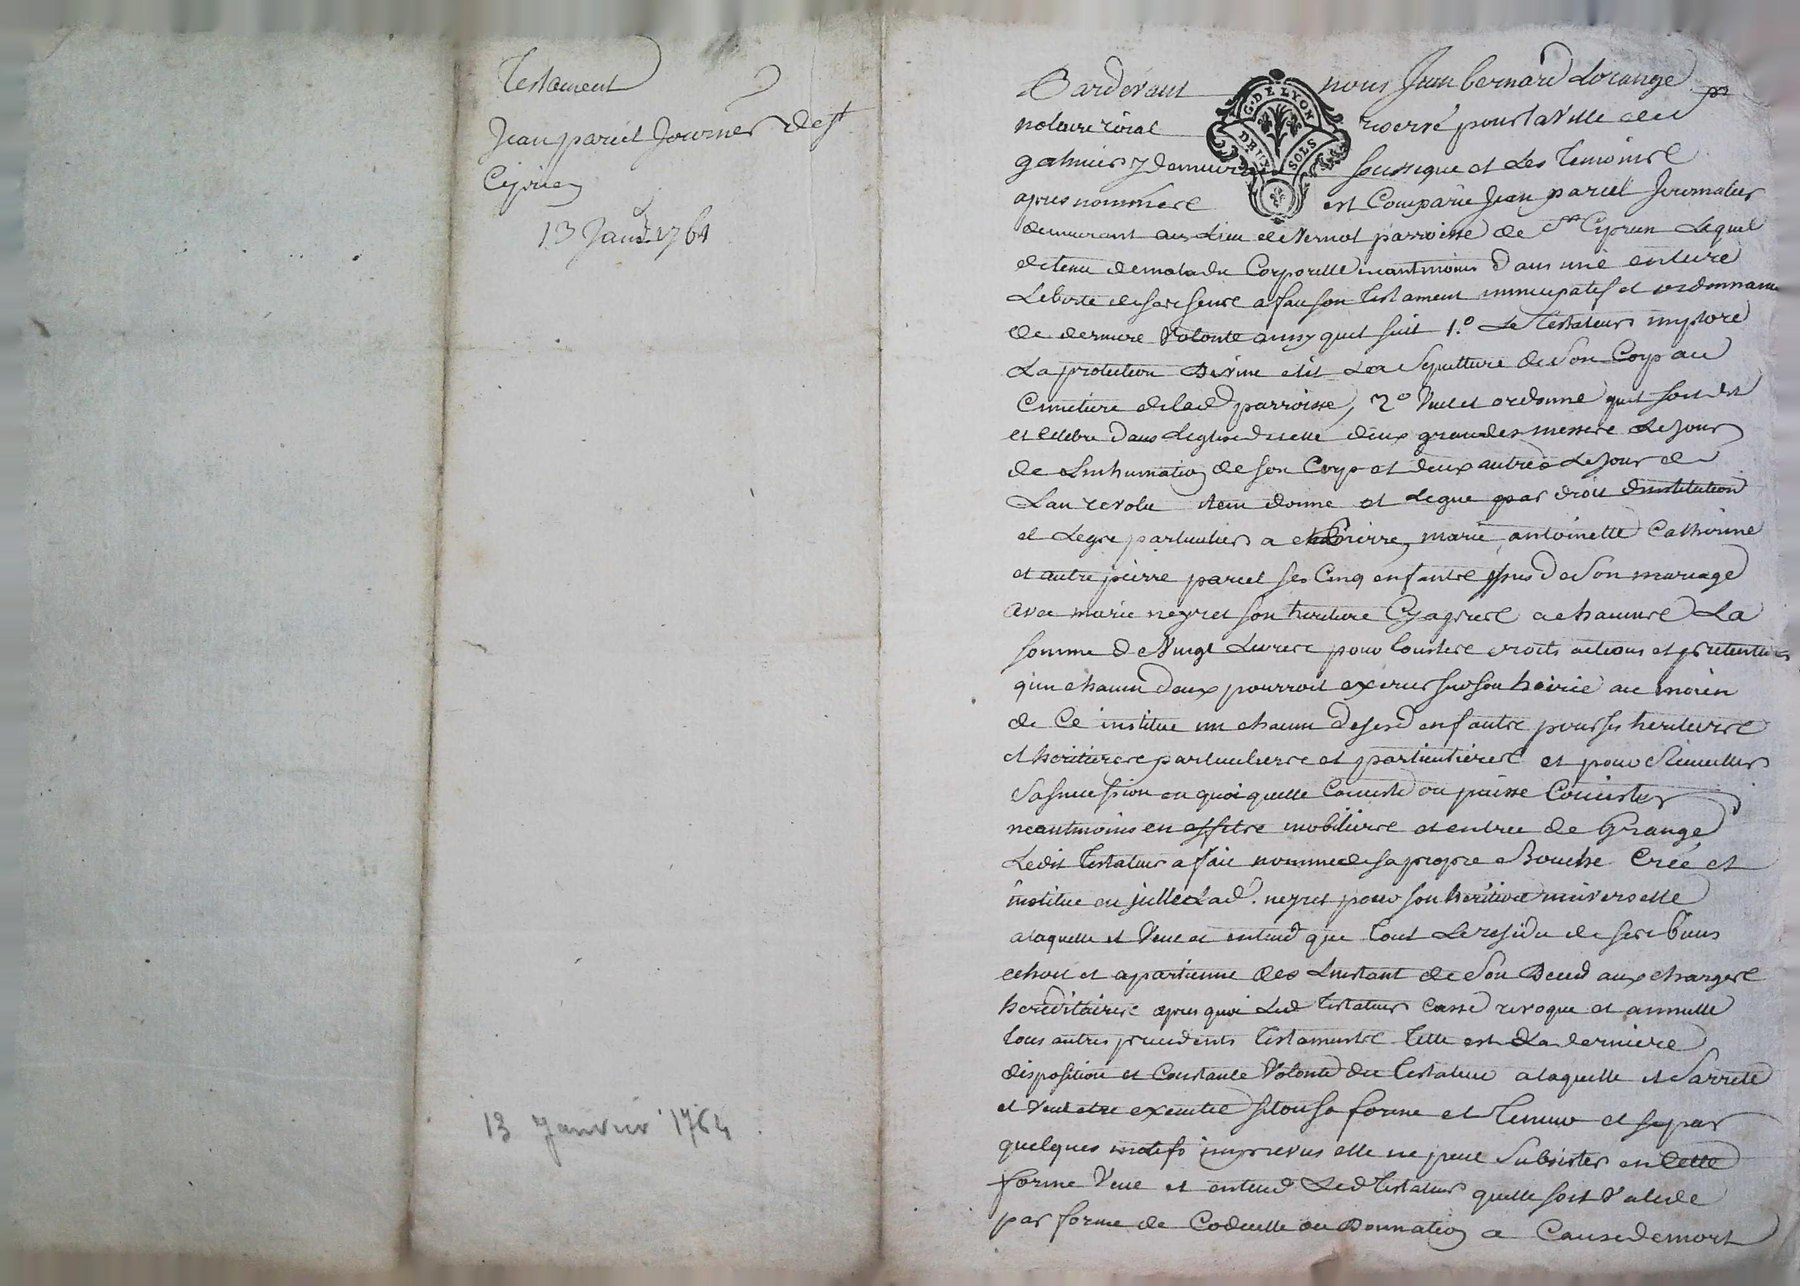 Testament
Jean parcel Journer de st
Ciprien
13 Janv. 1764
13 Janvier 1764
Pardevant nous Jean bernard Lorange
notaire roial reservé pour la Ville de
galmier y demeurant soussigné et Les temoins
apres nommes est Comparu Jean parcel Journalier
demeurant au Lieu de Vernot parroisse de St Ciprien Lequel
detenu de maladie Corporelle neantmoins dans une entiere
Liberte de ses sens a fait son testament nuncupatif et ordonnance
de derniere Volonte ainsy quil suit 1.° Le testateur implore
La protection Divine elit La Sepulture de Son Corp au
Cimetiere de lad parroisse, 2° Veut et ordonne quil soit dit
et Celebré dans Leglise dicelle deux grandes messes Le jour
de Linhumation de son Corp et deux autres Le jour de
Lan revolu item donne et Legue par droit dinstitution
et Legs particulier a pierre, marie, antoinette Catherine
et autre pierre parcel ses Cinq enfants issus de Son mariage
avec marie neyret son heritiere Cyapres a chacun La
somme de Vingt Livres pour tous les droits actions et pretentions
qun chacun deux pourroit exercer sur son hoirie au moien
de Ce institue un chacun de sesd enfants pour ses heritiers
et heritieres particuliers et particulieres et pour Recueillir
Sa succession en quoi quelle Consiste ou puisse Consister
neantmoins en effets mobiliers et entree de Grange
Ledit testateur a fait nommé de sa propre Bouche Créé et
institue en icelle Lad. neyret pour son heritiere universelle
a laquelle il Veut et entend que tout Le residu de ses biens
echoit et apartienne des Linstant de Son Deced aux charges
hereditaires apres quoi Led testateur casse revoque et annulle
tous autres precedents testaments telle est La derniere
disposition et Constante Volonté du testateur a laquelle il Sarrete
et Veut etre executee selon sa forme et teneur et si par
quelques motifs imprevus elle ne peut Subsister en Cette
forme Veut et entend Led testateur quelle soit Valide
par forme de Codicille ou Donnation a Cause de mort
G. DE LYON
DEUX SOLS